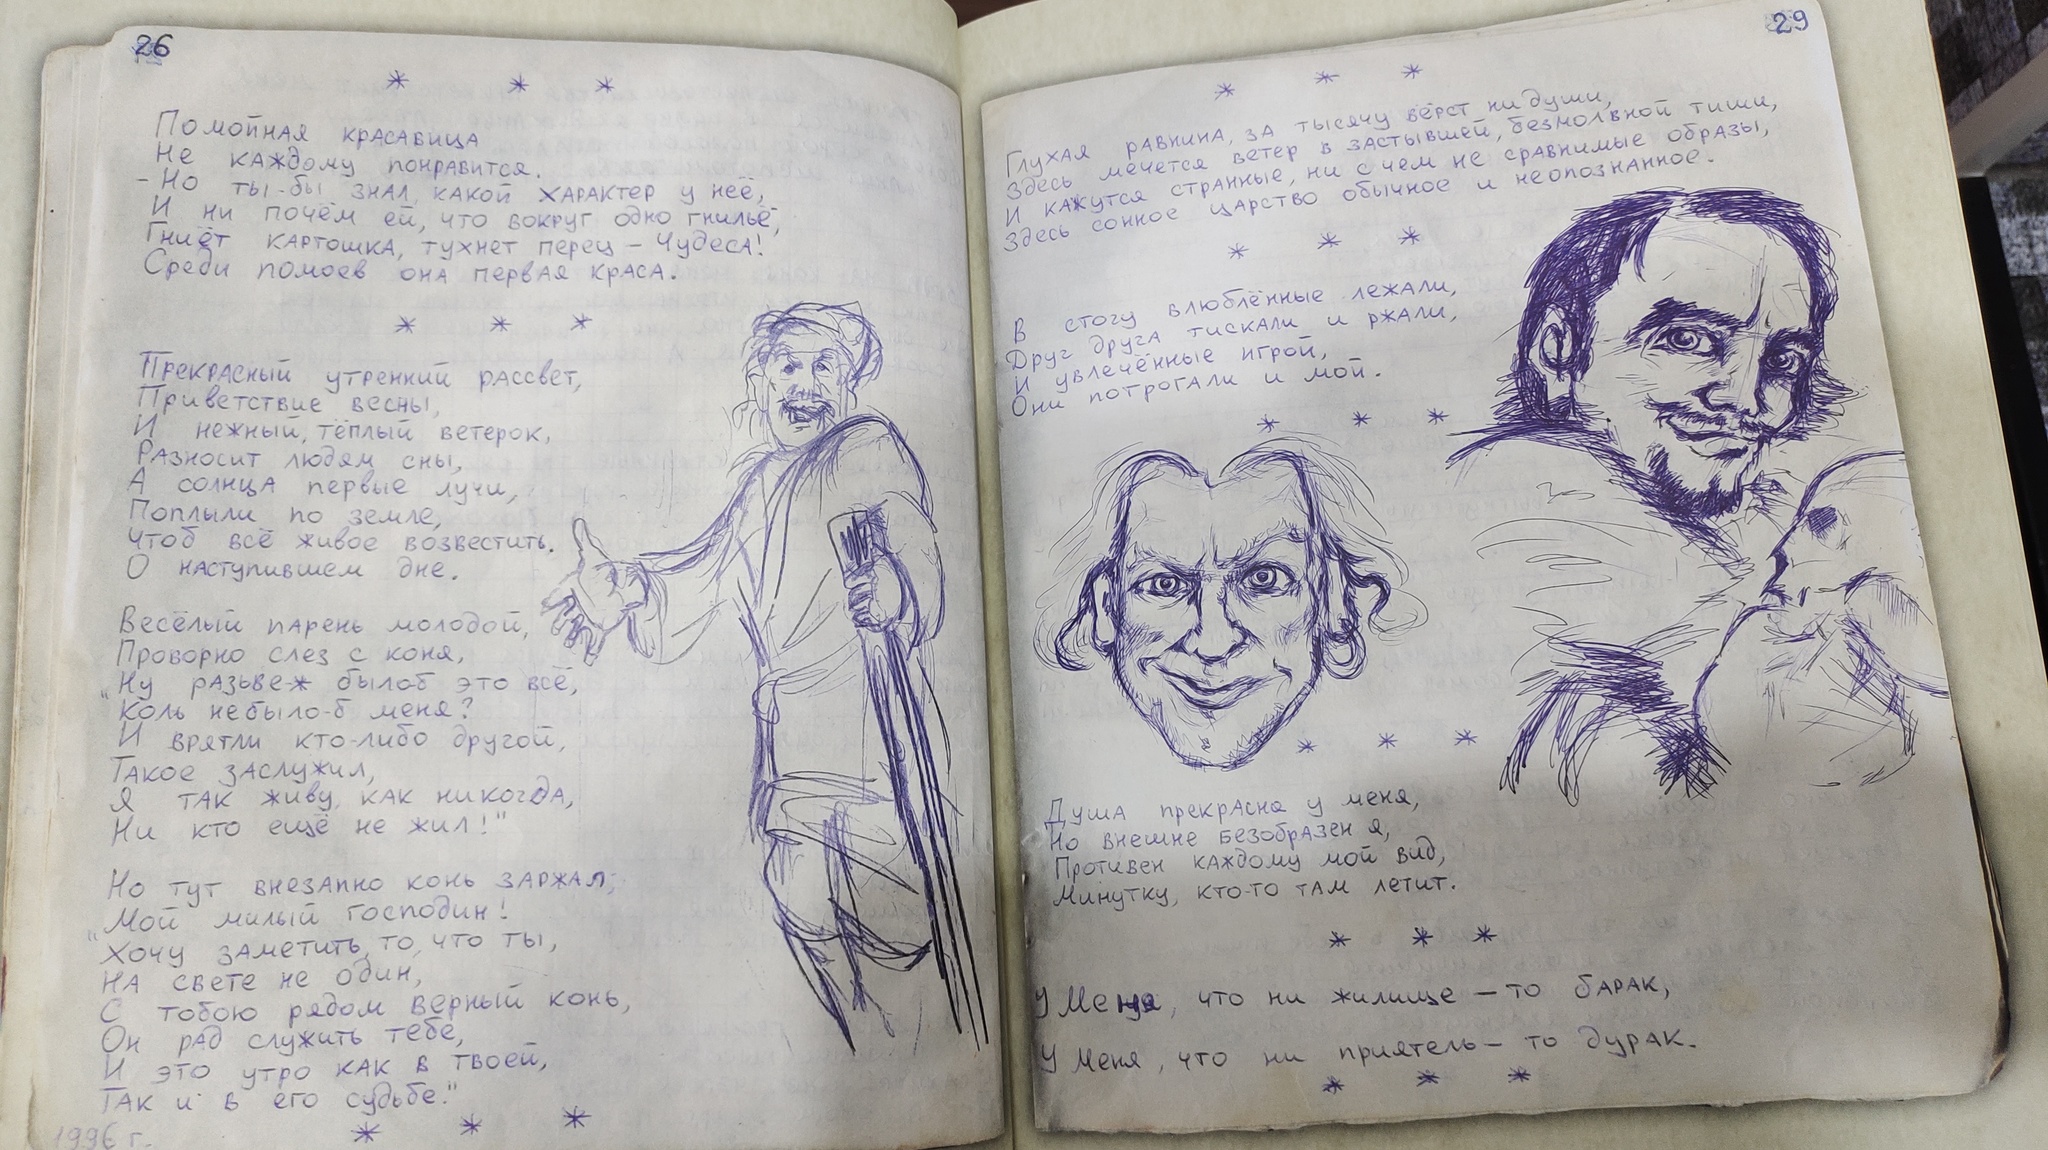 26
* * *
Помойная красавица
Не каждому понравится.
- Но ты-бы знал, какой характер у неё,
И ни почём ей, что вокруг одно гнильё,
Гниёт картошка, тухнет перец - Чудеса!
Среди помоев она первая краса.
* * *
Прекрасный утренний рассвет,
Приветствие весны,
И нежный, тёплый ветерок,
Разносит людям сны,
А солнца первые лучи,
Поплыли по земле,
Чтоб всё живое возвестить.
О наступившем дне.
Весёлый парень молодой,
Проворно слез с коня,
"Ну разьве-ж было-б это всё,
Коль небыло-б меня?
И врятли кто-либо другой,
Такое заслужил,
Я так живу, как никогда,
Ни кто ещё не жил!"
Но тут внезапно конь заржал;
"Мой милый господин!
Хочу заметить, то, что ты,
На свете не один,
С тобою рядом верный конь,
Он рад служить тебе,
И это утро как в твоей,
Так и в его судьбе."
* * *
1996 г.
29
* * *
Глухая равнина, за тысячу вёрст ни души,
Здесь мечется ветер в застывшей, безмолвной тиши,
И кажутся странные, ни с чем не сравнимые образы,
Здесь сонное царство обычное и неопознанное.
* * *
В стогу влюблённые лежали,
Друг друга тискали и ржали,
И увлечённые игрой,
Они потрогали и мой.
* * *
* * *
Душа прекрасна у меня,
Но внешне безобразен я,
Противен каждому мой вид,
Минутку, кто-то там летит.
* * *
У Меня, что ни жилище - то барак,
У Меня, что ни приятель - то дурак.
* * *